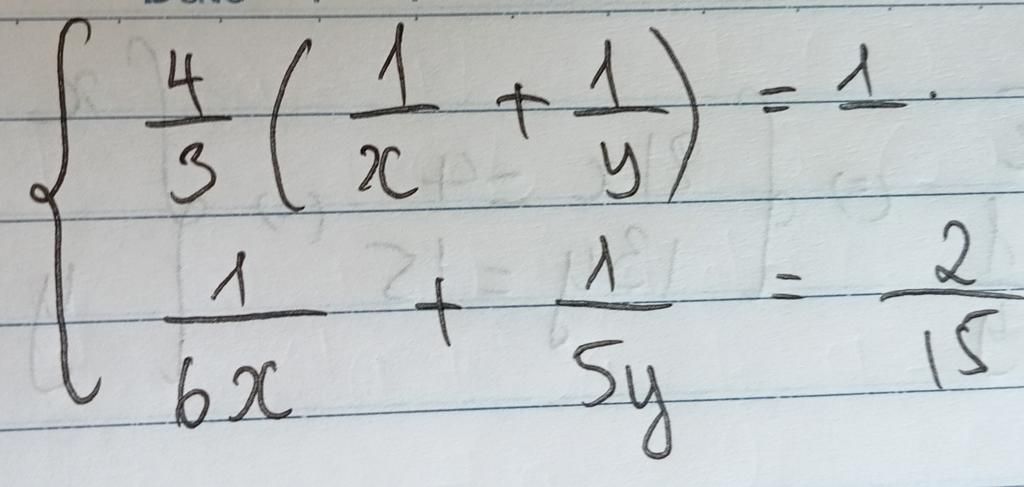 \begin{cases} \frac{4}{3} \left( \frac{1}{x} + \frac{1}{y} \right) = 1. \\ \frac{1}{6x} + \frac{1}{5y} = \frac{2}{15} \end{cases}